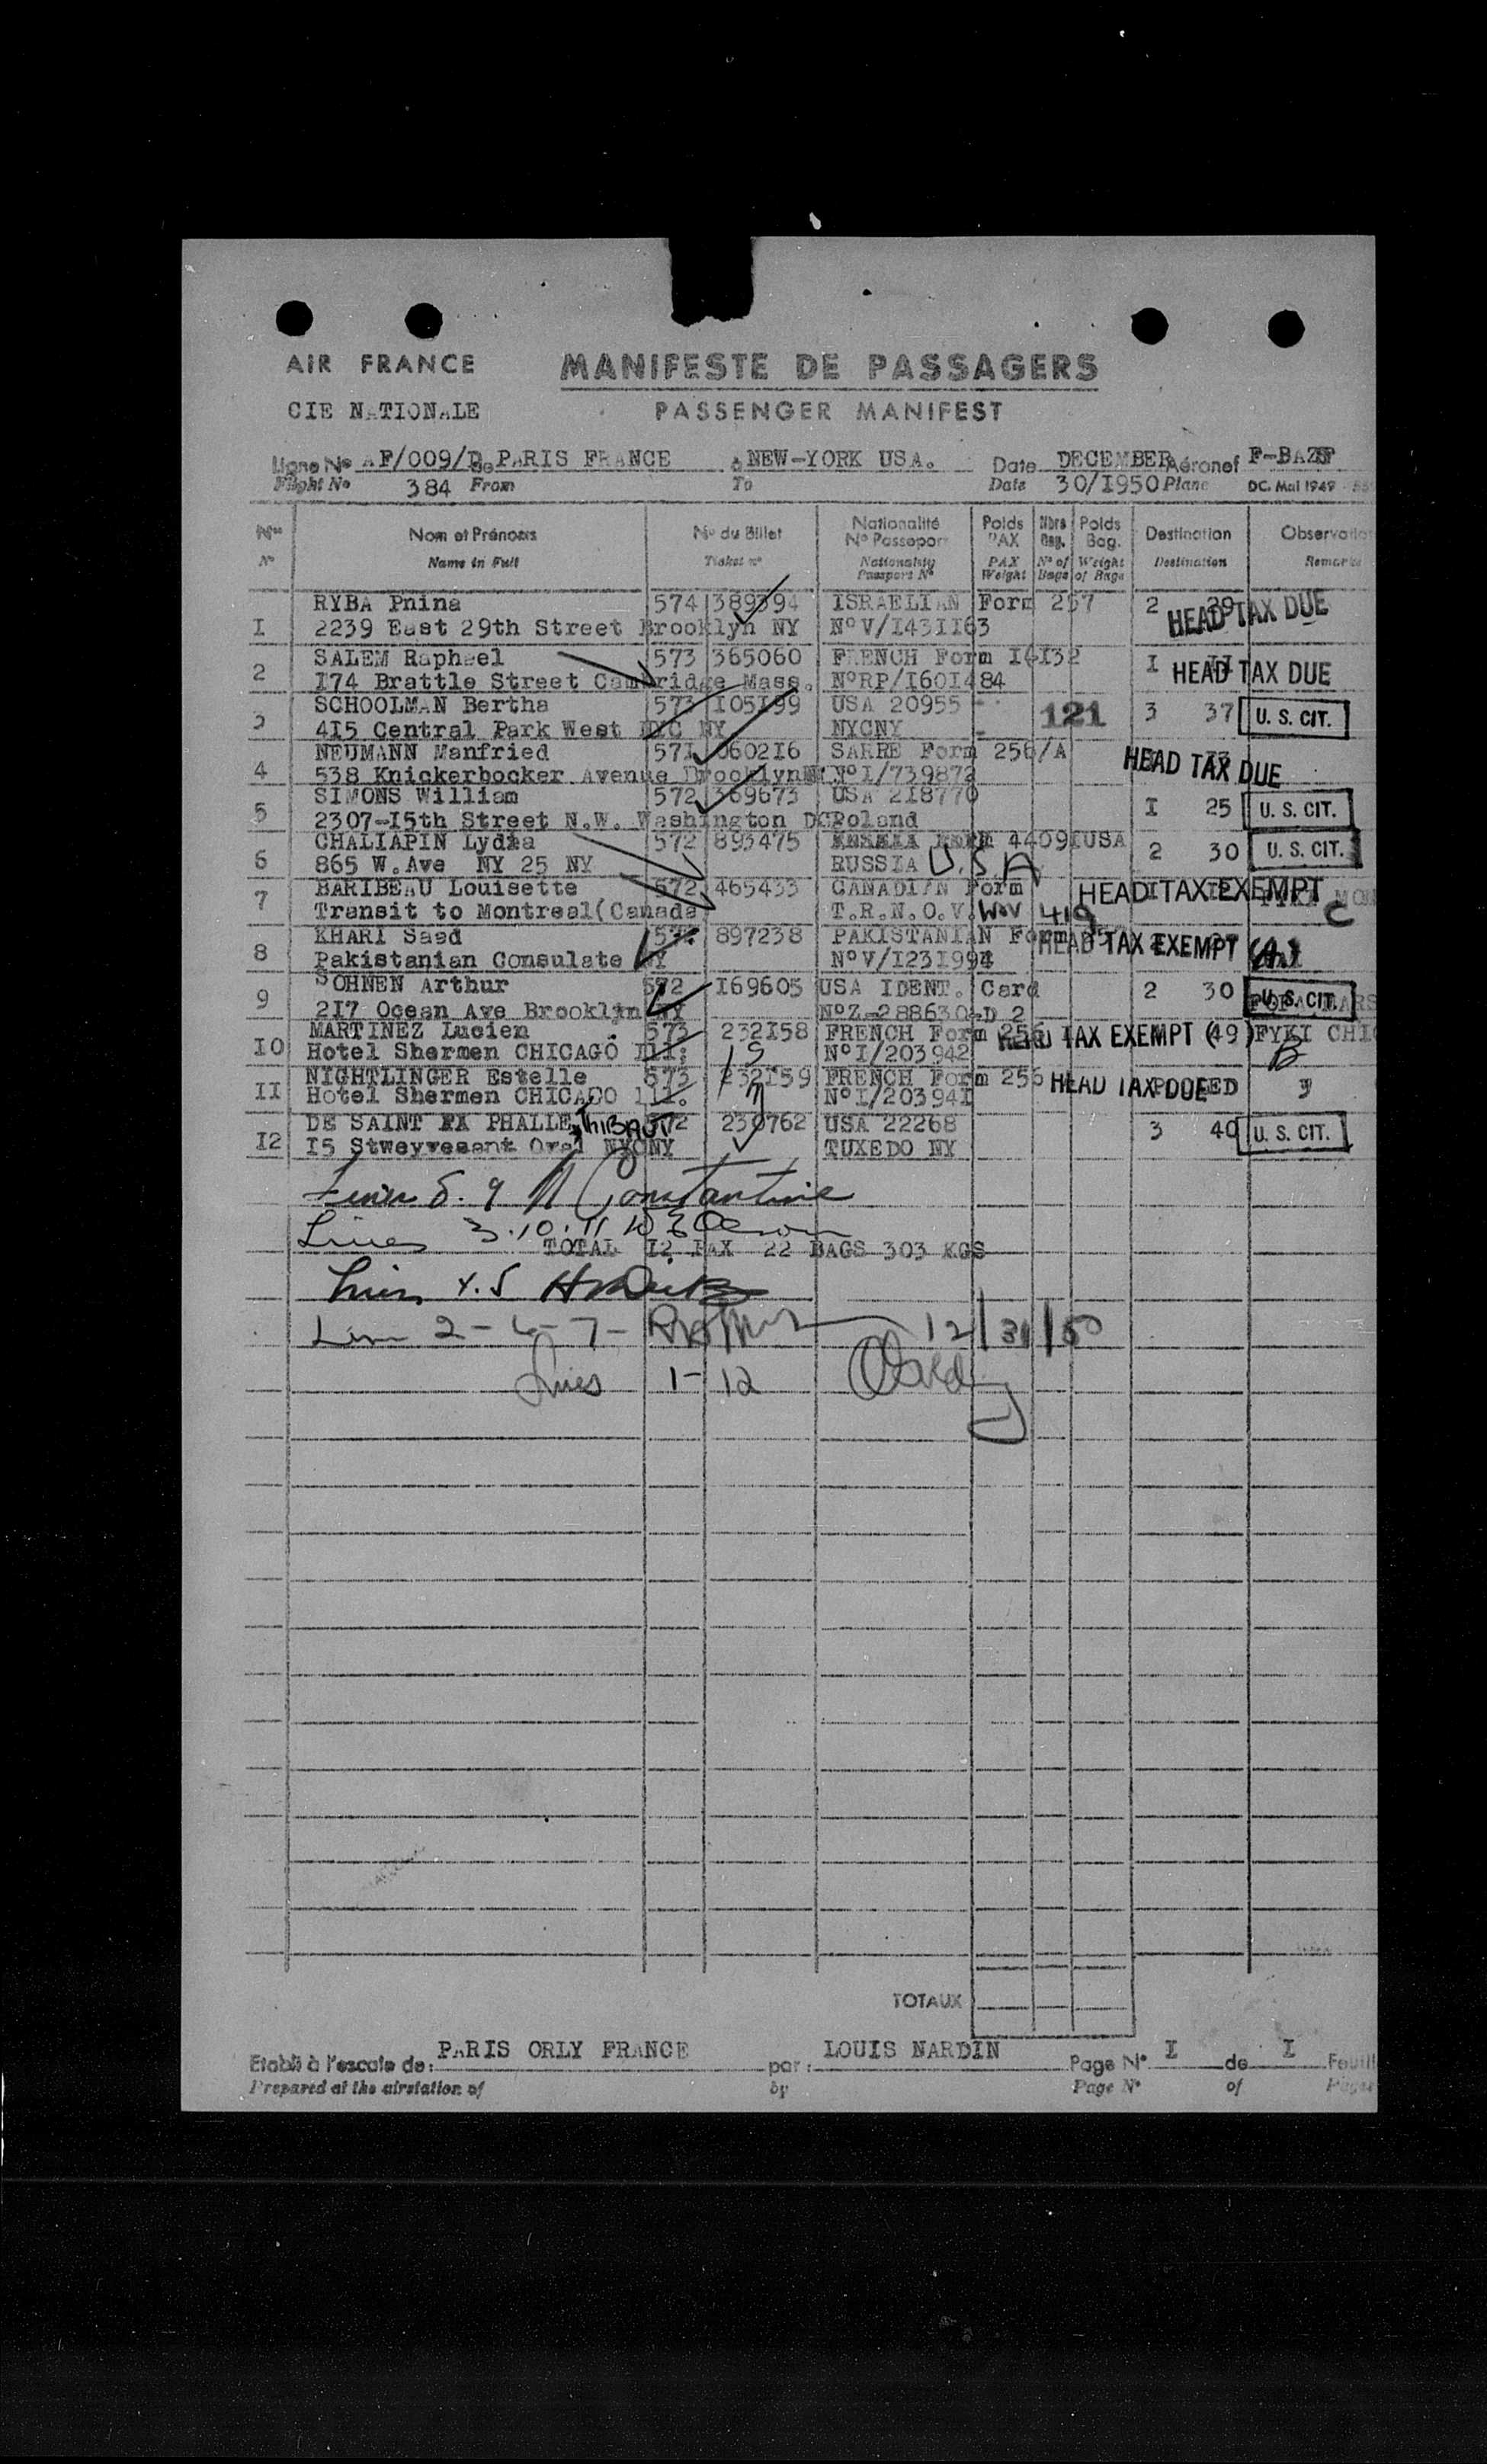 AIR FRANCE MANIFESTE DE PASSAGERS
CIE NATIONALE PASSENGER MANIFEST
Ligne No AF/009/D de PARIS FRANCE à NEW-YORK USA. Date DECEMBER Aéronef
Flight No 384 From To Date 30/I950 Plane DC. Mai 1949
Nos Nom et Prénoms No du Billet Nationalité No Passeport Poids PAX Nbre Bag. Poids Bag. Destination
No Name in Full Ticket no Nationality Passport No PAX Weight No of Bags Weight of Bags Destination Remarks
RYBA Pnina 574 389394 ISRAELIAN Form 257 2 HEAD TAX DUE
I 2239 East 29th Street Brooklyn NY NoV/I43II63
SALEM Raphael 573 365060 FRENCH Form I6I32 I HEAD TAX DUE
2 I74 Brattle Street Cambridge Mass. NoRP/I60I484
SCHOOLMAN Bertha 573 I05I99 USA 20955 121 3 37 U. S. CIT.
3 4I5 Central Park West NYC NY NYCNY
NEUMANN Manfried 57I 0602I6 SARRE Form 256/A HEAD TAX DUE
4 538 Knickerbocker Avenue Brooklyn NoI/739872
SIMONS William 572 369673 USA 2I8770 I 25 U. S. CIT.
5 2307-I5th Street N.W. Washington DC Poland
CHALIAPIN Lydia 572 893475 4409IUSA 2 30 U. S. CIT.
6 865 W.Ave NY 25 NY RUSSIA U.S A
BARIBEAU Louisette 572 465433 CANADIAN Form HEAD TAX EXEMPT
7 Transit to Montreal(Canada) T.R.N.O.V. 419 C
KHARI Saed 897238 PAKISTANIAN Form HEAD TAX EXEMPT
8 Pakistanian Consulate NY NoV/I23I994
SOHNEN Arthur 572 I69605 USA IDENT. Card 2 30 U. S. CIT.
9 2I7 Ocean Ave Brooklyn NY NoZ-288630-D 2
MARTINEZ Lucien 573 232I58 FRENCH Form 256 HEAD TAX EXEMPT (49)
I0 Hotel Shermen CHICAGO Ill; NoI/203942 B
NIGHTLINGER Estelle 573 232I59 FRENCH Form 256 HEAD TAX DUE
II Hotel Shermen CHICAGO lll. NoI/20394I
DE SAINT PHALLE THIBAUT 572 230762 USA 22268 3 40 U. S. CIT.
I2 I5 Stweyvesant Oval NYCNY TUXEDO NY
8. 9 Constantine
Lines 3.10.11
TOTAL I2 PAX 22 BAGS 303 KGS
Lines 4.5
2-6-7- 12/31/50
Lines 1-12
TOTAUX
PARIS ORLY FRANCE LOUIS NARDIN
Etabli à l'escale de: par: Page No I de I
Prepared at the airstation of by Page No of